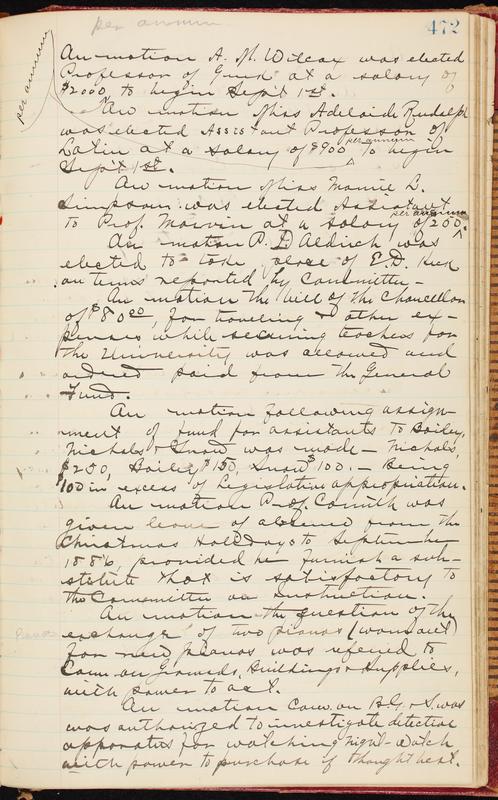 per annum
472
per annum
On motion A. M. Wilcox was elected
Professor of Greek at a salary of
$2000 to begin Sept 1st.
On motion Miss Adelaide Rudolph
was elected Assistant Professor of
Latin at a salary of $900 per annum to begin
Sept 1st.
On motion Miss Mamie L.
Simpson was elected Assistant
to Prof. Marvin at a salary of 200. per annum
On motion P. D. Aldrich was
elected to take place of E. D.
on terms reported by Committee -
On motion the bill of the Chancellor
of $80.00, for traveling & other ex-
penses while securing teachers for
the University was allowed and
ordered paid from the General
Fund.
On motion following assign-
ment of fund for assistants to Bailey,
Nichols & Snow was made - Nichols,
$250, Bailey $150, Snow $100. - Being
$100 in excess of Legislative appropriation.
On motion Prof. Cornith was
given leave of absence from the
Christmas Holidays to September
1886, provided he furnish a sub-
stitute that is satisfactory to
the Committee on Instruction.
On motion the question of the
exchange of two pianos (worn out)
for new pianos was refered to
Com. on Grounds, Buildings & Supplies,
with power to act.
On motion Com. on B.G. & S. was
was authorized to investigate detective
apparatus for watching night-watch
with power to purchase if thought best.